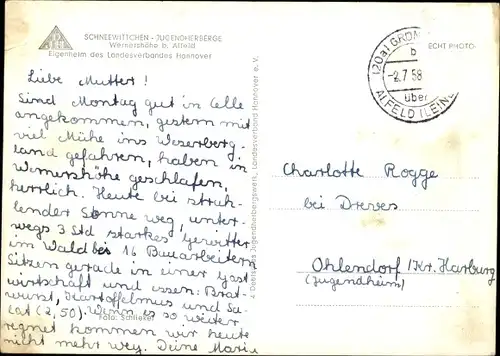 SCHNEEWITTCHEN - JUGENDHERBERGE
Wernershöhe b. Alfeld
Eigenheim des Landesverbandes Hannover
Liebe Mutter!
Sind Montag gut in Celle
angekommen, gestern mit
viel Mühe ins Weserberg-
land gefahren, haben in
Wernershöhe geschlafen,
herrlich. Heute bei strah-
lender Sonne weg, unter-
wegs 3 Std starkes Gewitter
im Wald bei 16 Bauarbeitern
Sitzen gerade in einer Gast
wirtschaft und essen: Brat-
wurst, Kartoffelmus und Sa-
lat (2,50). Wenn es so weiter
regnet kommen wir heute
nicht mehr weg. Deine Maria
Foto: Schlieker
Jugendherbergswerk, Landesverband Hannover e. V.
(20a) GRON
b
-2.7.58
über
ALFELD (LEINE)
ECHT PHOTO
Charlotte Rogge
bei Dreves
Ohlendorf/Kr. Harburg
(Jugendheim)